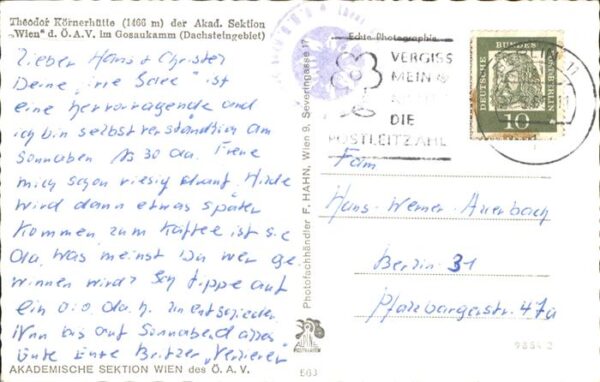 Theodor Körnerhütte (1466 m) der Akad. Sektion
„Wien" d. Ö. A. V. im Gosaukamm (Dachsteingebiet)
Lieber Hans + Christer
Deine „irre Idee" ist
eine hervorragende und
ich bin selbstverständlich am
Sonnabend 15 30 da. Freue
mich schon riesig drauf.
wird dann etwas später
kommen zum Kaffee ist sie
da. Was meinst Du wer ge
winnen wird? Ich tippe auf
ein 0:0 da. h. unentschieden
Nun bis auf Sonnabend alles
Gute Eure
AKADEMISCHE SEKTION WIEN des Ö. A. V.
Photofachhändler F. HAHN, Wien 9, Severingasse 17
Echte Photographie
VERGISS
MEIN
NICHT
DIE
POSTLEITZAHL
DEUTSCHE
BUNDESPOST
BERLIN
10
Fam
Hans-Werner Auerbach
Berlin 31
Pfalzburgerstr. 47a
563